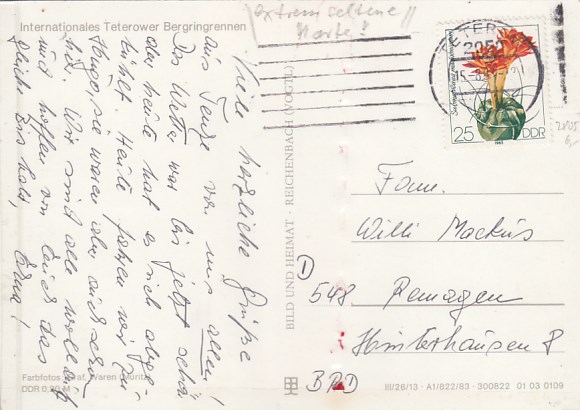 Internationales Teterower Bergringrennen
extrem seltene
Karte!
Viele herzliche Grüße
aus Tenze von uns allen!
Das Wetter war bis jetzt schön
heute hat es sich abge-
kühlt. Heute fahren wir zu
Hugo, sie waren
Wir sind alle wohlauf
und hoffen von Euch das
gleiche. Bis bald,
Erna!
Farbfotos: Waren (Müritz)
DDR 0,20 M
BILD UND HEIMAT · REICHENBACH (VOGTL)
TETEROW
2050
25 DDR
1983
Fam.
Willi Mackus
D
548 Remagen
Hinterhausen 8
BRD
III/26/13 · A1/822/83 · 300822 01 03 0109